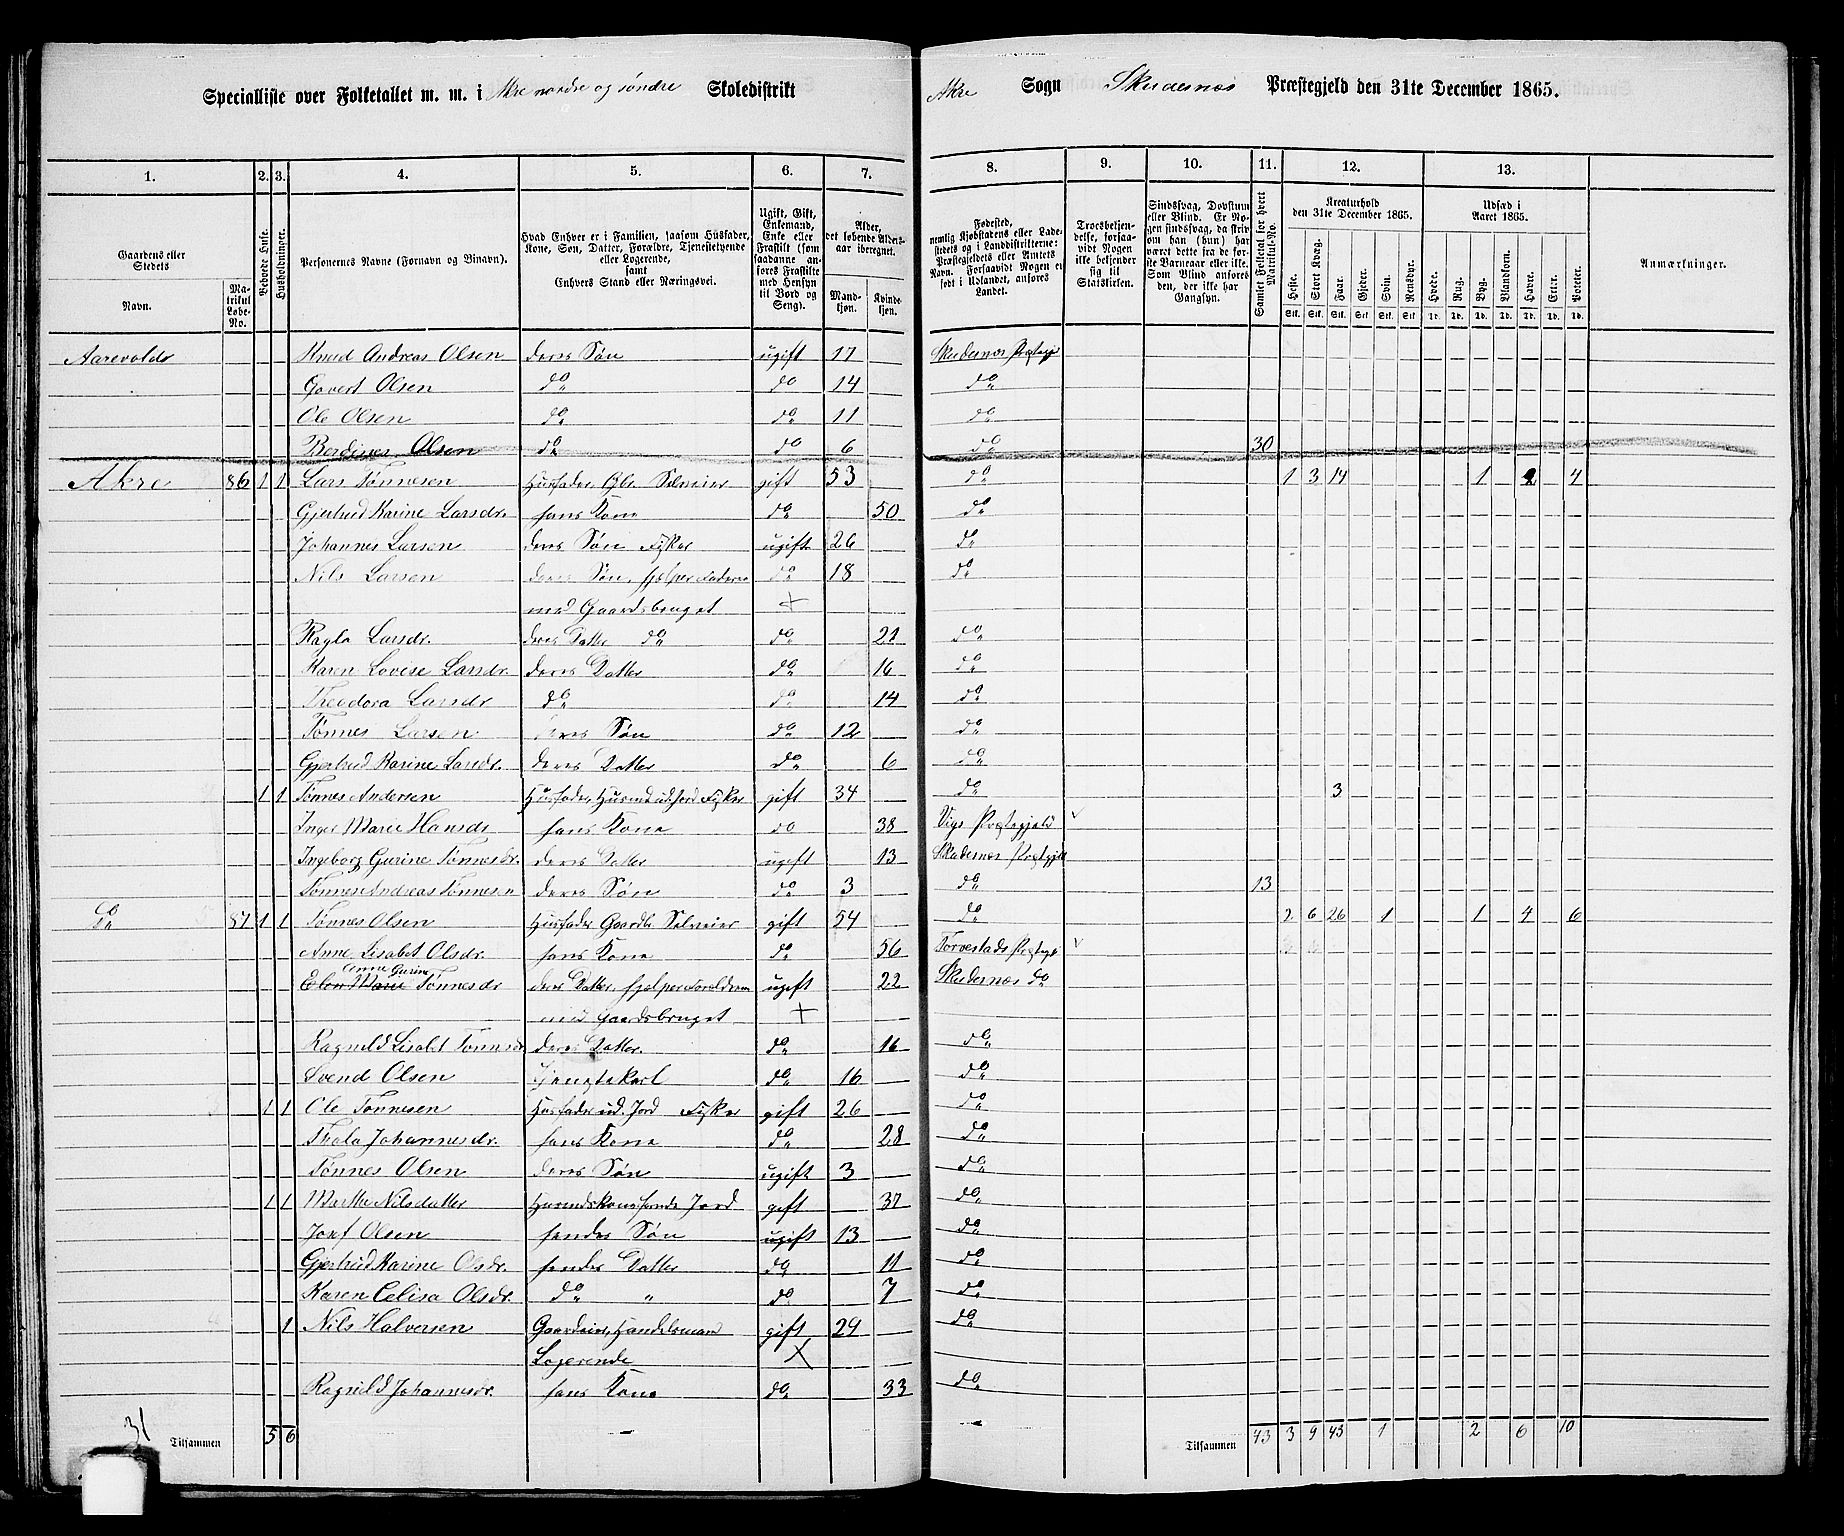 Specialliste over Folketallet m. m. i Akre nordre og søndre Skoledistrikt
Akre Sogn Skudesnæs Præstegjeld den 31te December 1865.
1. 2. 3. 4. 5. 6. 7. 8. 9. 10. 11. 12. 13.
Gaardens eller Stedets
Navn.
Matrikul Løbe-No.
Beboede Huse.
Husholdninger.
Personernes Navne (Fornavn og Binavn).
Hvad Enhver er i Familien, saasom Husfader, Kone, Søn, Datter, Forældre, Tjenestetyende eller Logerende, samt Enhvers Stand eller Næringsvei.
Ugift, Gift, Enkemand, Enke eller Fraskilt (som saadanne anføres Fraskilte med Hensyn til Bord og Seng).
Alder, det løbende Aldersaar iberegnet.
Mandkjøn. Kvindekjøn.
Fødested, nemlig Kjøbstadens eller Ladestedets og i Landdistrikterne: Præstegjeldets eller Amtets Navn. Forsaavidt Nogen er født i Udlandet, anføres Landet.
Troesbekjendelse, forsaavidt Nogen ikke bekjender sig til Statskirken.
Sindssvag, Døvstum eller Blind. Er Nogen sindssvag, da skriv om han (hun) har været dette fra de første Barneaar eller ikke. Som Blind anføres den, der ikke har Gangsyn.
Samlet Folketal for hvert Matrikul-No.
Kreaturhold den 31te December 1865.
Heste. Stort Kvæg. Faar. Gjeder. Svin. Rensdyr.
Udsæd i Aaret 1865.
Hvede. Rug. Byg. Blandkorn. Havre. Erter. Poteter.
Stk. Stk. Stk. Stk. Stk. Stk Td. Td. Td. Td. Td. Td. Td.
Anmærkninger.
Aarevolds Knud Andreas Olsen deres Søn ugift 17 Skudesnæs Præstegj
Govert Olsen do do 14 do
Ole Olsen do do 11 do
Berdines Olsen do do 6 do 30
Akre 86 1 1 Lars Tønnesen Husfader Gbr. Selveier gift 53 do 1 3 14 1 2 4
Gjertrud Karine Larsdr. hans Kone do 50 do
Johannes Larsen deres Søn Fisker ugift 26 do
Nils Larsen deres Søn, hjelper Faderen do 18 do
med Gaardsbruget +
Ragla Larsdr. deres Datter do do 21 do
Karen Lovise Larsdr. deres Datter do 16 do
Theodora Larsdr do do 14 do
Tønnes Larsen deres Søn do 12 do
Gjertrud Karine Larsdr. deres Datter do 6 do
1 1 Tønnes Andersen Husfader, Husmd ud Jord Fisker gift 34 do 3
Inger Marie Hansdr hans Kone do 38 Vigs Præstegjeld v
Ingeborg Gurine Tønnesdr. deres Datter ugift 13 Skudesnæs Præstgjeld
Tønnes Andreas Tønnesen deres Søn do 3 do 13
Do 87 1 1 Tønnes Olsen Husfader Gaardbr Selveier gift 54 do 2 6 26 1 1 4 6
Anne Lisabet Olsdr. hans Kone do 56 Torvestads Præstegj v
Anne Gurine
Elen Marie Tønnesdr deres Datter, hjelper Forældrene ugift 22 Skudesnæs do
med Gaardsbruget +
Ragnild Lisabet Tønnesdr deres Datter. do 16 do
Svend Olsen Tjenestekarl do 16 do
1 1 Ole Tønnesen Husfader ud. Jord Fisker gift 26 do
Thala Johannesdr. hans Kone do 28 do
Tønnes Olsen deres Søn ugift 3 do
1 1 Marthe Nilsdatter Husmdskone hende Jord gift 37 do
Josef Olsen hendes Søn ugift 13 do
Gjertrud Karine Olsdr. hendes Datter do 11 do
Karen Celisa Olsdr. do " do 7 do
1 Nils Halversen Gaardeier, Handelsmand gift 29 do
Logerende X
Ragnild Johannesdr. hans Kone do 33 do
31 Tilsammen 5 6
Tilsammen 43 3 9 43 1 2 6 10